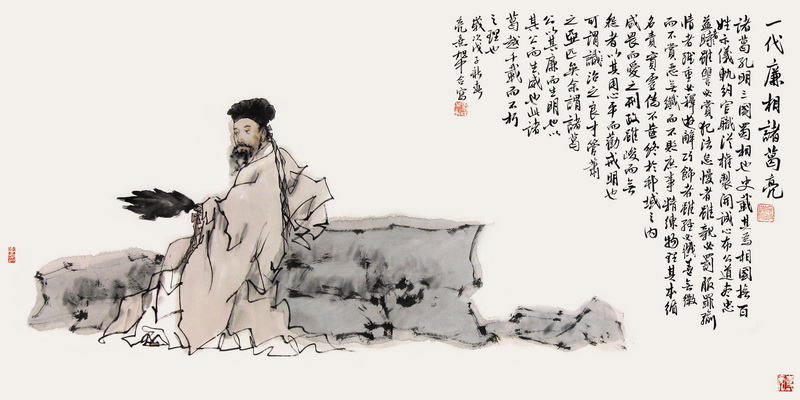 一代廉相諸葛亮
諸葛孔明三國蜀相也史載其為相國撫百
姓示儀軌約官職從權製開誠心布公道盡忠
益時雖讐必賞犯法怠慢者雖親必罰服罪輸
情者雖重必釋遊辭巧飾者雖輕必懲善無微
而不賞惡無纖而不貶庶事精練物理其本循
名責實虛偽不齒終於邦域之內
咸畏而愛之刑政雖峻而無
怨者以其用心平而勸戒明也
可謂識治之良才管蕭
之亞匹矣余謂諸葛
公以其廉而生明也以
其公而生威也此諸
葛越千載而不朽
之理也
歲次戊子新春